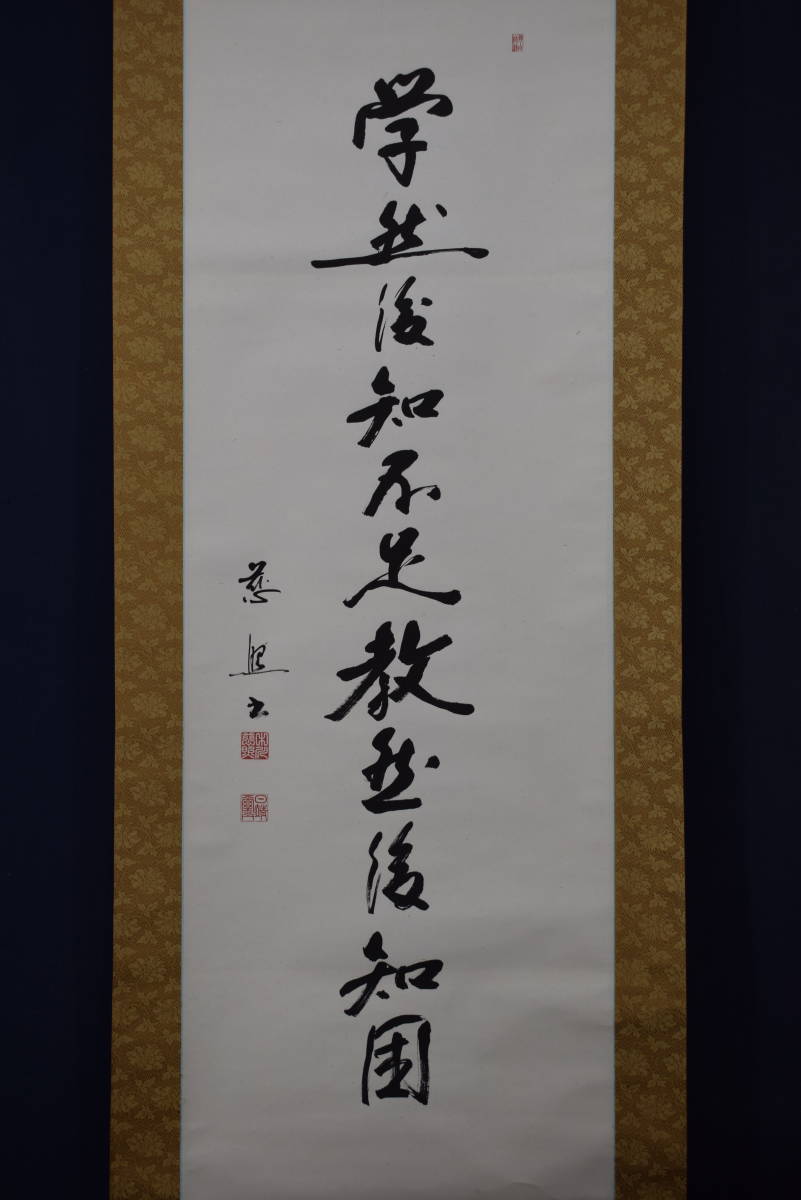 学然後知不足教然後知困
慈照書